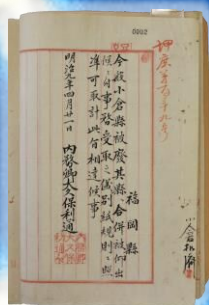 福岡縣
今般小倉縣被廢其縣ヘ合併被仰出
候ニ付事務受取之儀別紙規則ニ照
準可取計此旨相達候事
明治九年四月廿一日
内務卿大久保利通